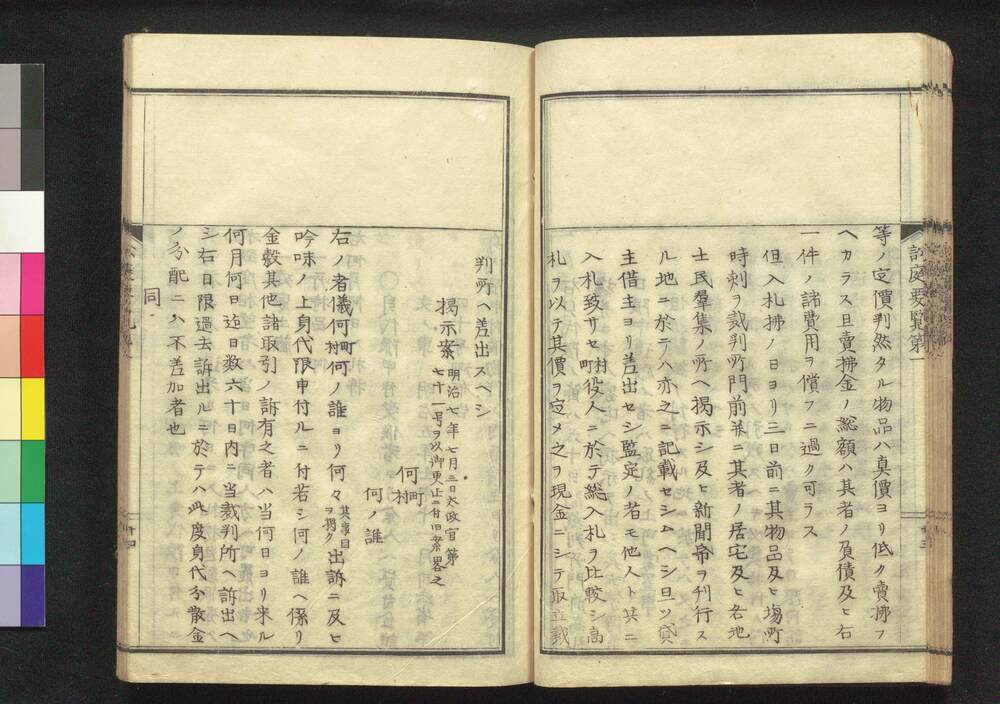 訟庭要覧第一
等ノ定價判然タル物品ハ真價ヨリ低ク賣拂フ
ヘカラス且賣拂金ノ総額ハ其者ノ負債及ヒ右
一件ノ諸費用ヲ償フニ過ク可ラス
但入札拂ノ日ヨリ三日前ニ其物品及ヒ塲所
時刻ヲ裁判所門前並ニ其者ノ居宅及ヒ各地
士民羣集ノ所ヘ掲示シ及ヒ新聞帋ヲ刊行ス
ル地ニ於テハ亦之ニ記載セシムヘシ且ツ貸
主借主ヨリ差出セシ監定ノ者モ他人ト共ニ
入札致サセ村町役人ニ於テ総入札ヲ比較シ高
札ヲ以テ其價ヲ定メ之ヲ現金ニシテ取立裁
十三
判所ヘ差出スベシ
掲示案 明治七年七月三日太政官第
七十一号ヲ以御更正ニ付旧案畧之
何町村
何ノ誰
右ノ者儀何町村何ノ誰ヨリ何々其事目ヲ掲ク出訴ニ及ヒ
吟味ノ上身代限申付ルニ付若シ何ノ誰ヘ係リ
金穀其他諸取引ノ訴有之者ハ当何日ヨリ来ル
何月何日迄日数六十日内ニ当裁判所ヘ訴出ヘ
シ右日限過去訴出ルニ於テハ此度身代分散金
ノ分配ニハ不差加者也
同
十四